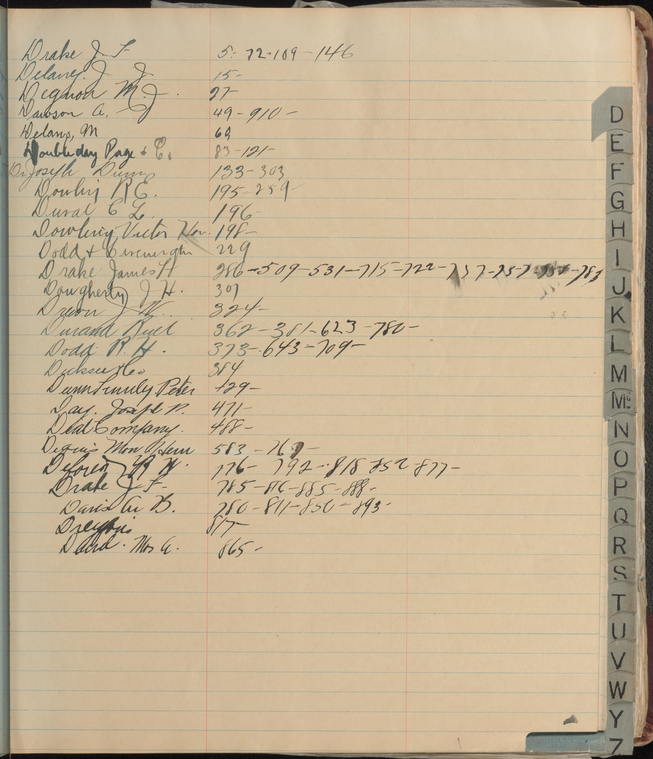 Drake J. F. 5-72-109-146
Delaney J. J. 15-
Degnon M. J. 27-
Dawson A. G 49-910-
Delano, M 69
Doubleday Page & Co. 83-121-
Dr Joseph Dunn 133-303
Dowlin R. E. 195-259-
Duval C L. 196-
Dowling Victor Hon. 198-
Dodd & 229
Drake James H 286-509-531-715-722-737-757-783
Dougherty J. H. 307
J. W. 324-
Durand Ruel 362-381-623-780-
Dodd R. H. 373-643-709-
384
Dunn Peter 429-
Day. Joseph P. 471-
Deal Company. 488-
Mon. 583
R. W. 776-792-818-852-877-
Drake J. F- 785-816-885-888-
Davis A. B. 780-811-850-893-
Dreyfus 817-
David. Mrs A. 865-
D
E
F
G
H
I
J
K
L
M
Mc
N
O
P
Q
R
S
T
U
V
W
Y
Z